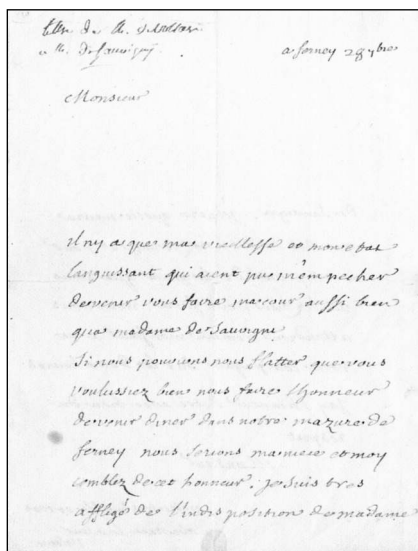 Lettre de M. de Voltaire
a M. de Sauvigny
a ferney 28 7bre
Monsieur
il ny a que ma vieillesse et mon etat
languissant qui aient pu m'empecher
de venir vous faire ma cour aussi bien
qua madame de Sauvigni
Si nous pouvions nous flatter que vous
voulussiez bien nous faire lhonneur
de venir diner dans notre mazure de
ferney nous serions ma niece et moy
comblez de cet honneur. je suis tres
affligé de l'indisposition de madame